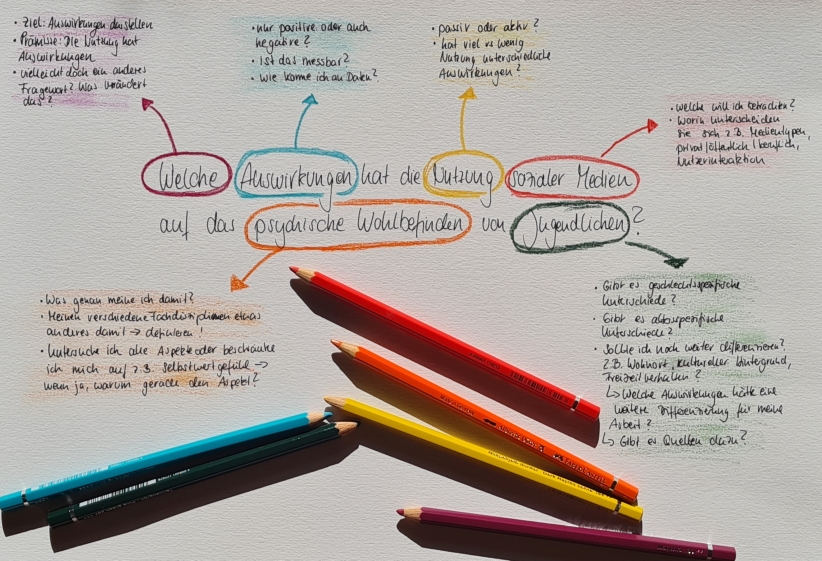 • Ziel: Auswirkungen darstellen
• Prämisse: Die Nutzung hat
Auswirkungen
• vielleicht doch ein anderes
Fragewort? Was verändert
das?
• nur positive oder auch
negative?
• Ist das messbar?
• Wie komme ich an Daten?
• passiv oder aktiv?
• hat viel vs wenig
Nutzung unterschiedliche
Auswirkungen?
• welche will ich betrachten?
• Worin unterscheiden
sie sich z.B. Medientypen,
privat/öffentlich/beruflich,
Nutzerinteraktion
Welche Auswirkungen hat die Nutzung sozialer Medien
auf das psychische Wohlbefinden von Jugendlichen?
• Was genau meine ich damit?
• Meinen verschiedene Fachdisziplinen etwas
anderes damit → definieren!
• Untersuche ich alle Aspekte oder beschränke
ich mich auf z.B. Selbstwertgefühle →
wenn ja, warum gerade den Aspekt?
• Gibt es geschlechtsspezifische
Unterschiede?
• Gibt es altersspezifische
Unterschiede?
• Sollte ich noch weiter differenzieren?
z.B. Wohnort, kultureller Hintergrund,
Freizeitverhalten?
↳ Welche Auswirkungen hätte eine
weitere Differenzierung für meine
Arbeit?
↳ Gibt es Quellen dazu?